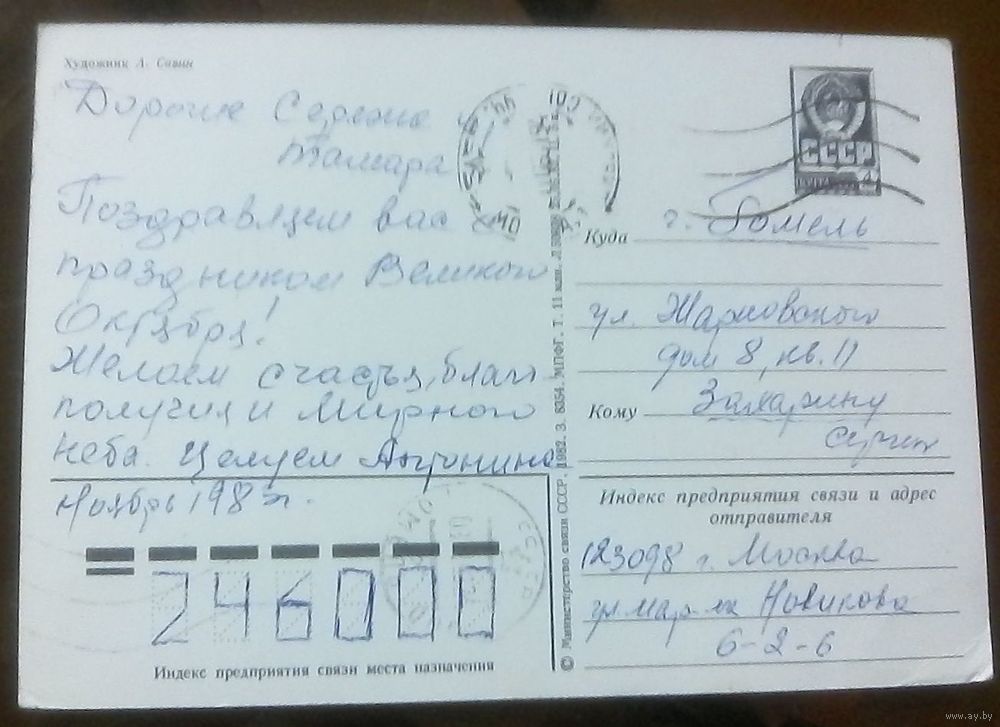 Художник А. Савин
Дорогие Сережа и
Тамара
Поздравляем вас
праздником Великого
Октября!
Желаем счастья, благо
получия и Мирного
неба. Целуем Антонина
Ноябрь 198 г.
246000
Индекс предприятия связи места назначения
© Министерство связи СССР. 1982. З. 8354. МПФГ. Т. 11 млн.
СССР
Куда г. Гомель
ул. Жарковского
дом 8, кв. 11
Кому Захарину
Сергею
Индекс предприятия связи и адрес
отправителя
123098 г. Москва
ул Мар-ла Новикова
6-2-6
www.ay.by